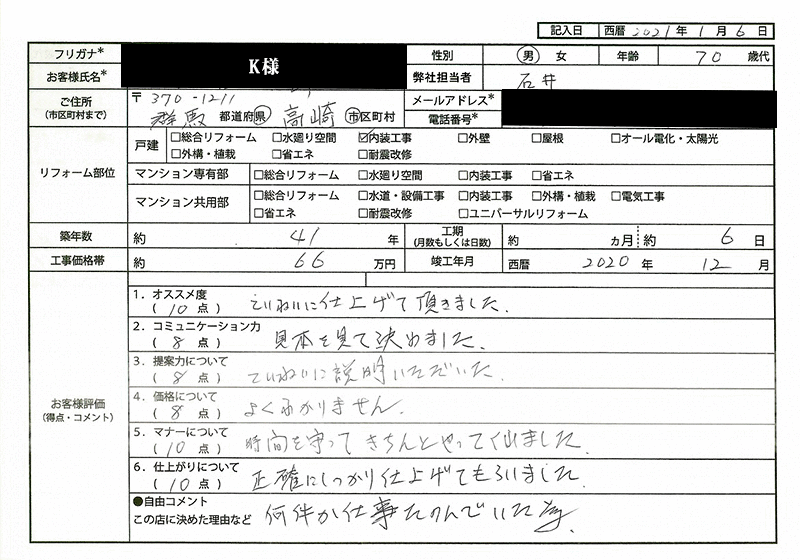 記入日 西暦 2021 年 1 月 6 日
フリガナ* K様 性別 男 女 年齢 70 歳代
お客様氏名* 弊社担当者 石井
ご住所 〒370-1211 メールアドレス*
(市区町村まで) 群馬 都道府県 高崎 市区町村 電話番号*
リフォーム部位
戸建 □総合リフォーム □水廻り空間 ☑内装工事 □外壁 □屋根 □オール電化・太陽光
□外構・植栽 □省エネ □耐震改修
マンション専有部 □総合リフォーム □水廻り空間 □内装工事 □省エネ
マンション共用部 □総合リフォーム □水道・設備工事 □内装工事 □外構・植栽 □電気工事
□省エネ □耐震改修 □ユニバーサルリフォーム
築年数 約 41 年 工期 (月数もしくは日数) 約 ヵ月 約 6 日
工事価格帯 約 66 万円 竣工年月 西暦 2020 年 12 月
お客様評価
(得点・コメント)
1．オススメ度
( 10 点 ) ていねいに仕上げて頂きました。
2．コミュニケーション力
( 8 点 ) 見本を見て決めました。
3．提案力について
( 8 点 ) ていねいに説明いただいた。
4．価格について
( 8 点 ) よくわかりません。
5．マナーについて
( 10 点 ) 時間を守ってきちんとやって
6．仕上がりについて
( 10 点 ) 正確にしっかり仕上げてもらいました。
●自由コメント
この店に決めた理由など 何件か仕事たのんでいた為。